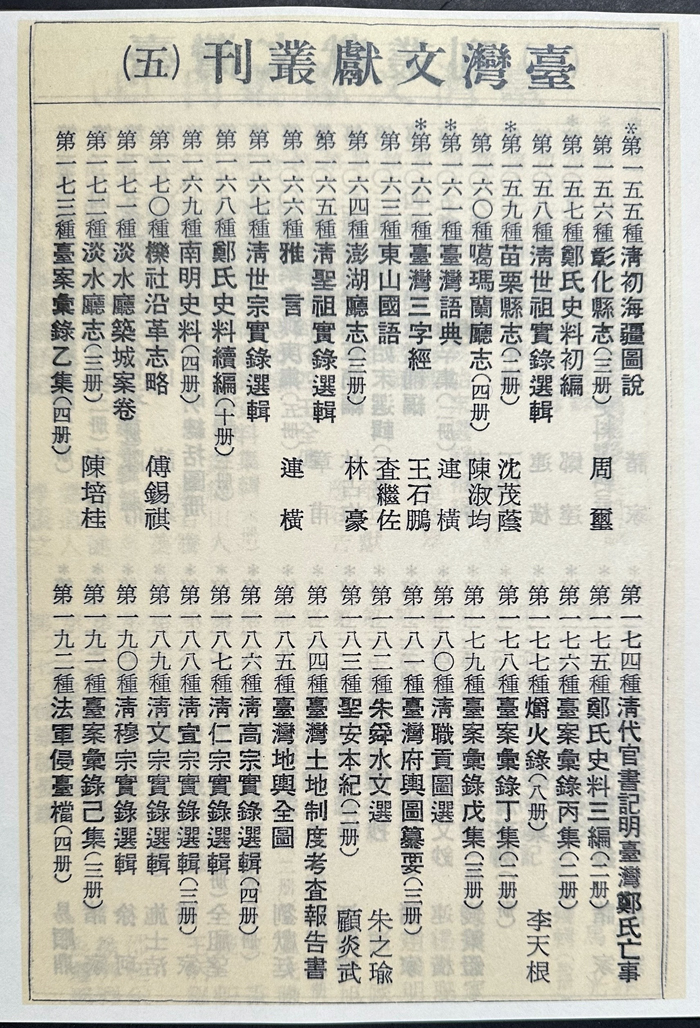 臺灣文獻叢刊(五)
*第一五五種清初海疆圖說
第一五六種彰化縣志(三册) 周 璽
第一五七種鄭氏史料初編
第一五八種清世祖實錄選輯
*第一五九種苗栗縣志(二册) 沈茂蔭
第一六〇種噶瑪蘭廳志(四册) 陳淑均
*第一六一種臺灣語典 連 橫
*第一六二種臺灣三字經 王石鵬
第一六三種東山國語 查繼佐
第一六四種澎湖廳志(三册) 林 豪
第一六五種清聖祖實錄選輯
第一六六種雅 言 連 橫
第一六七種清世宗實錄選輯
第一六八種鄭氏史料續編(十册)
第一六九種南明史料(四册)
第一七〇種櫟社沿革志略 傅錫祺
第一七一種淡水廳築城案卷
第一七二種淡水廳志(三册) 陳培桂
第一七三種臺案彙錄乙集(四册)
第一七四種清代官書記明臺灣鄭氏亡事
第一七五種鄭氏史料三編(二册)
第一七六種臺案彙錄丙集(二册)
第一七七種爝火錄(八册) 李天根
第一七八種臺案彙錄丁集(二册)
第一七九種臺案彙錄戊集(三册)
第一八〇種清職貢圖選
第一八一種臺灣府輿圖纂要(三册)
第一八二種朱舜水文選 朱之瑜
第一八三種聖安本紀(二册) 顧炎武
第一八四種臺灣土地制度考查報告書
第一八五種臺灣地輿全圖
第一八六種清高宗實錄選輯(四册)
第一八七種清仁宗實錄選輯
第一八八種清宣宗實錄選輯(三册)
第一八九種清文宗實錄選輯
第一九〇種清穆宗實錄選輯
第一九一種臺案彙錄己集(三册)
第一九二種法軍侵臺檔(四册)